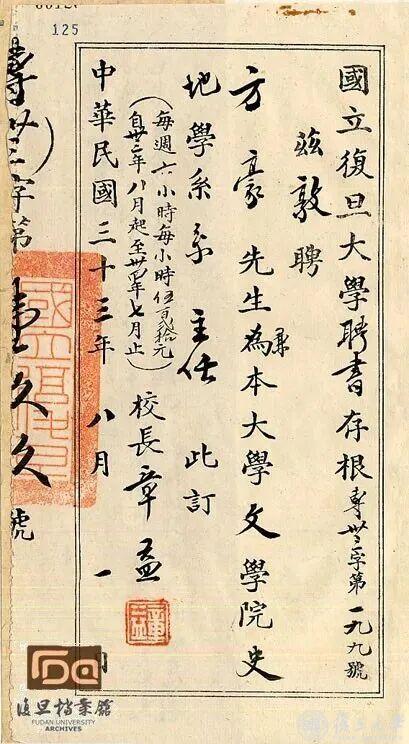 125
國立復旦大學聘書存根專卅三字第一九九號
茲敦聘
方豪先生為兼本大學文學院史
地學系系主任 此訂
(每週六小時每小時伍百貳拾元
自卅三年八月起至卅四年七月止)
校長章益
中華民國三十三年八月一日
字第壹久久號
復旦檔案館
FUDAN UNIVERSITY
ARCHIVES